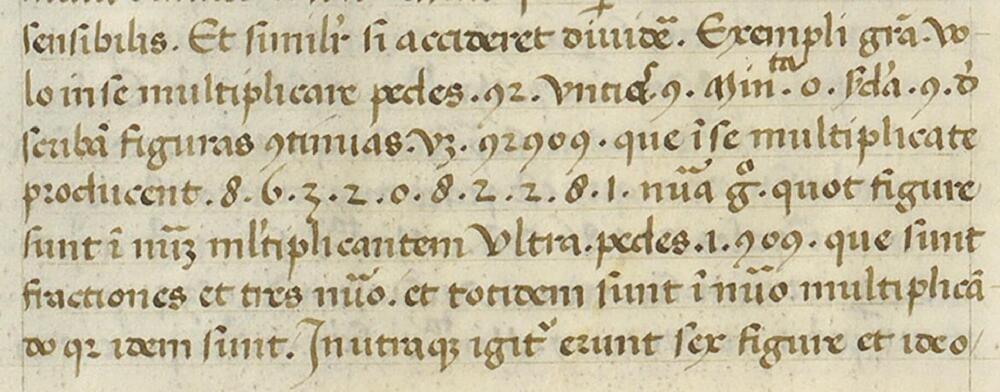 sensibilis. Et similr̃ si accideret diuidẽ. Exempli grã. vo
lo in se multiplicare pedes .92. vncias .9. Minta. 0. scďa. 9. đ
scribã figuras ꝯtinuas. vꝫ. 92909. que ĩ se multiplicate
producent. 8. 6. 3. 2. 0. 8. 2. 2. 8. 1. nũa gº. quot figure
sunt ĩ nũꝫ ml̃tiplicantem Vltra. pedes. 1. 909. que sunt
fractiones et tres nũo. et totidem sunt ĩ nũo multiplicã
do qꝛ idem sunt. In utraqꝫ igit᷑ erunt sex figure et ideo